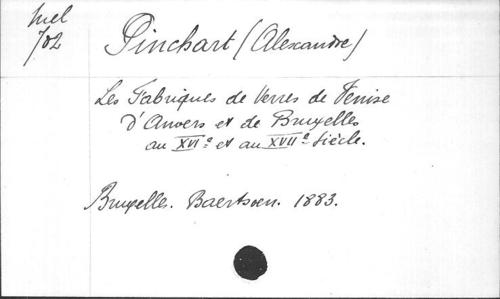 Mel
702
Pinchart (Alexandre)
Les Fabriques de Verres de Venise
d'Anvers et de Bruxelles
au XVIe et au XVIIe Siècle.
Bruxelles. Baertsoen. 1883.